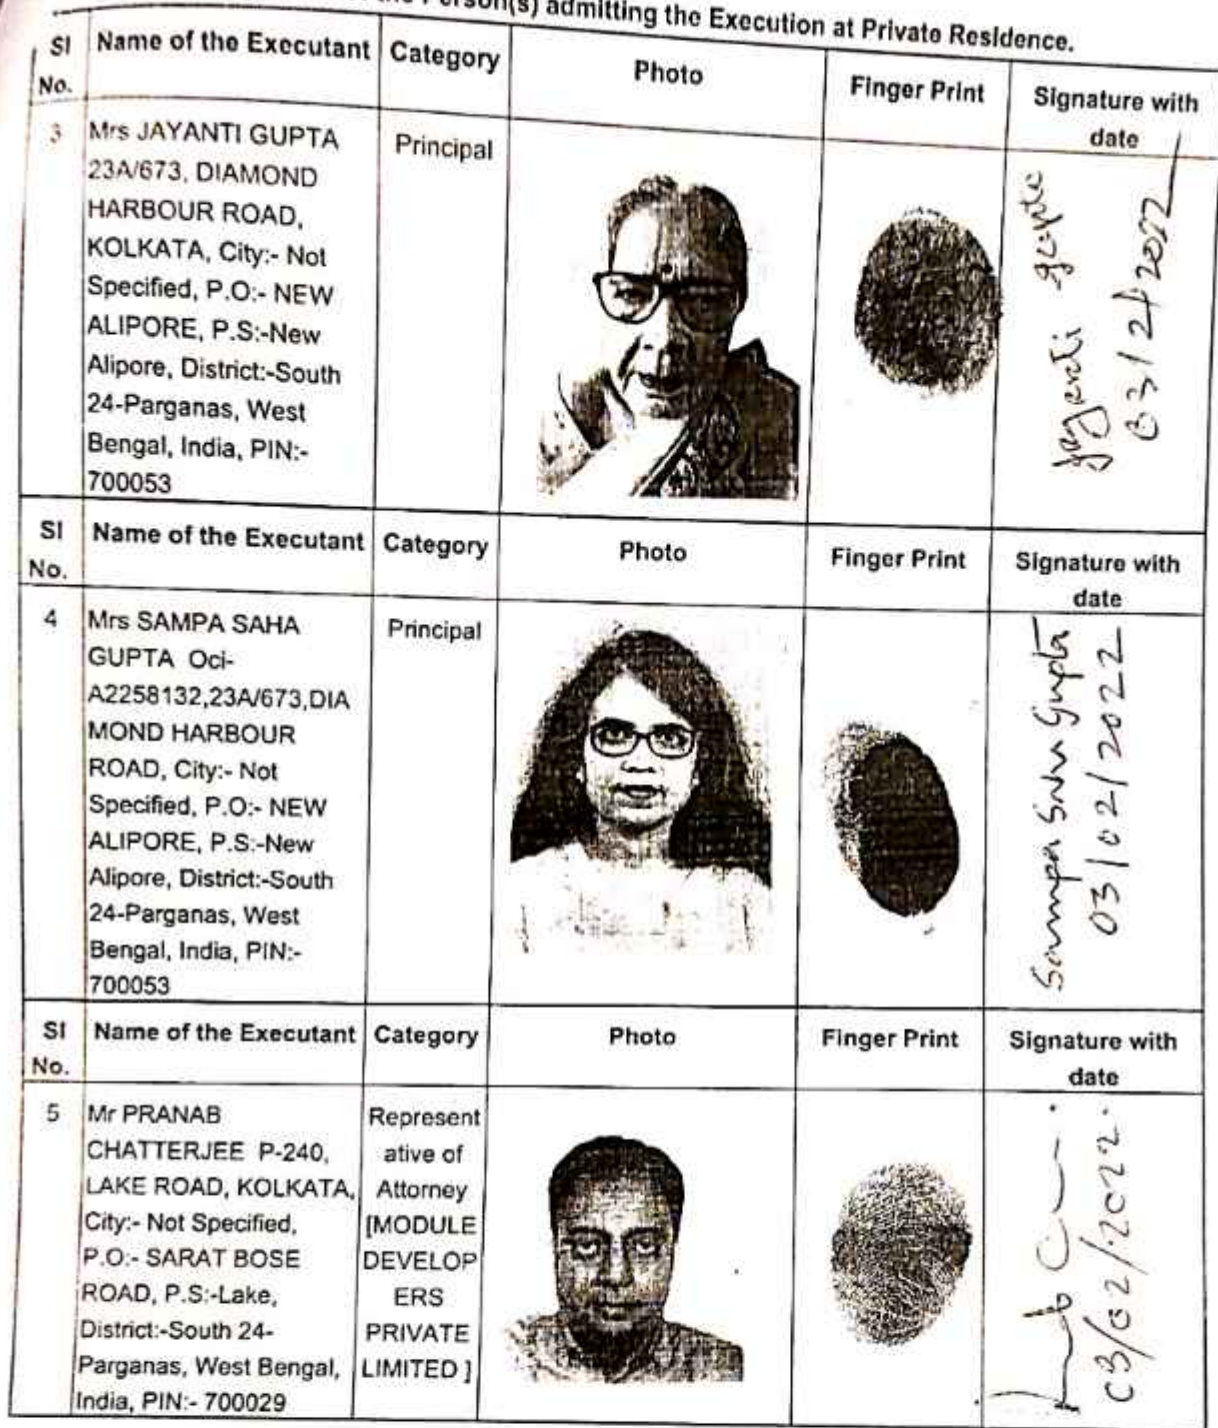 the Person(s) admitting the Execution at Private Residence.
Sl No. Name of the Executant Category Photo Finger Print Signature with date
3 Mrs JAYANTI GUPTA Principal
23A/673, DIAMOND
HARBOUR ROAD,
KOLKATA, City:- Not
Specified, P.O:- NEW
ALIPORE, P.S:-New
Alipore, District:-South
24-Parganas, West
Bengal, India, PIN:-
700053
Jayanti gupta
03/2/2022
Sl No. Name of the Executant Category Photo Finger Print Signature with date
4 Mrs SAMPA SAHA Principal
GUPTA Oci-
A2258132,23A/673,DIA
MOND HARBOUR
ROAD, City:- Not
Specified, P.O:- NEW
ALIPORE, P.S:-New
Alipore, District:-South
24-Parganas, West
Bengal, India, PIN:-
700053
Sampa Saha Gupta
03/02/2022
Sl No. Name of the Executant Category Photo Finger Print Signature with date
5 Mr PRANAB
CHATTERJEE P-240,
LAKE ROAD, KOLKATA,
City:- Not Specified,
P.O:- SARAT BOSE
ROAD, P.S:-Lake,
District:-South 24-
Parganas, West Bengal,
India, PIN:- 700029
Represent
ative of
Attorney
[MODULE
DEVELOP
ERS
PRIVATE
LIMITED ]
03/02/2022.